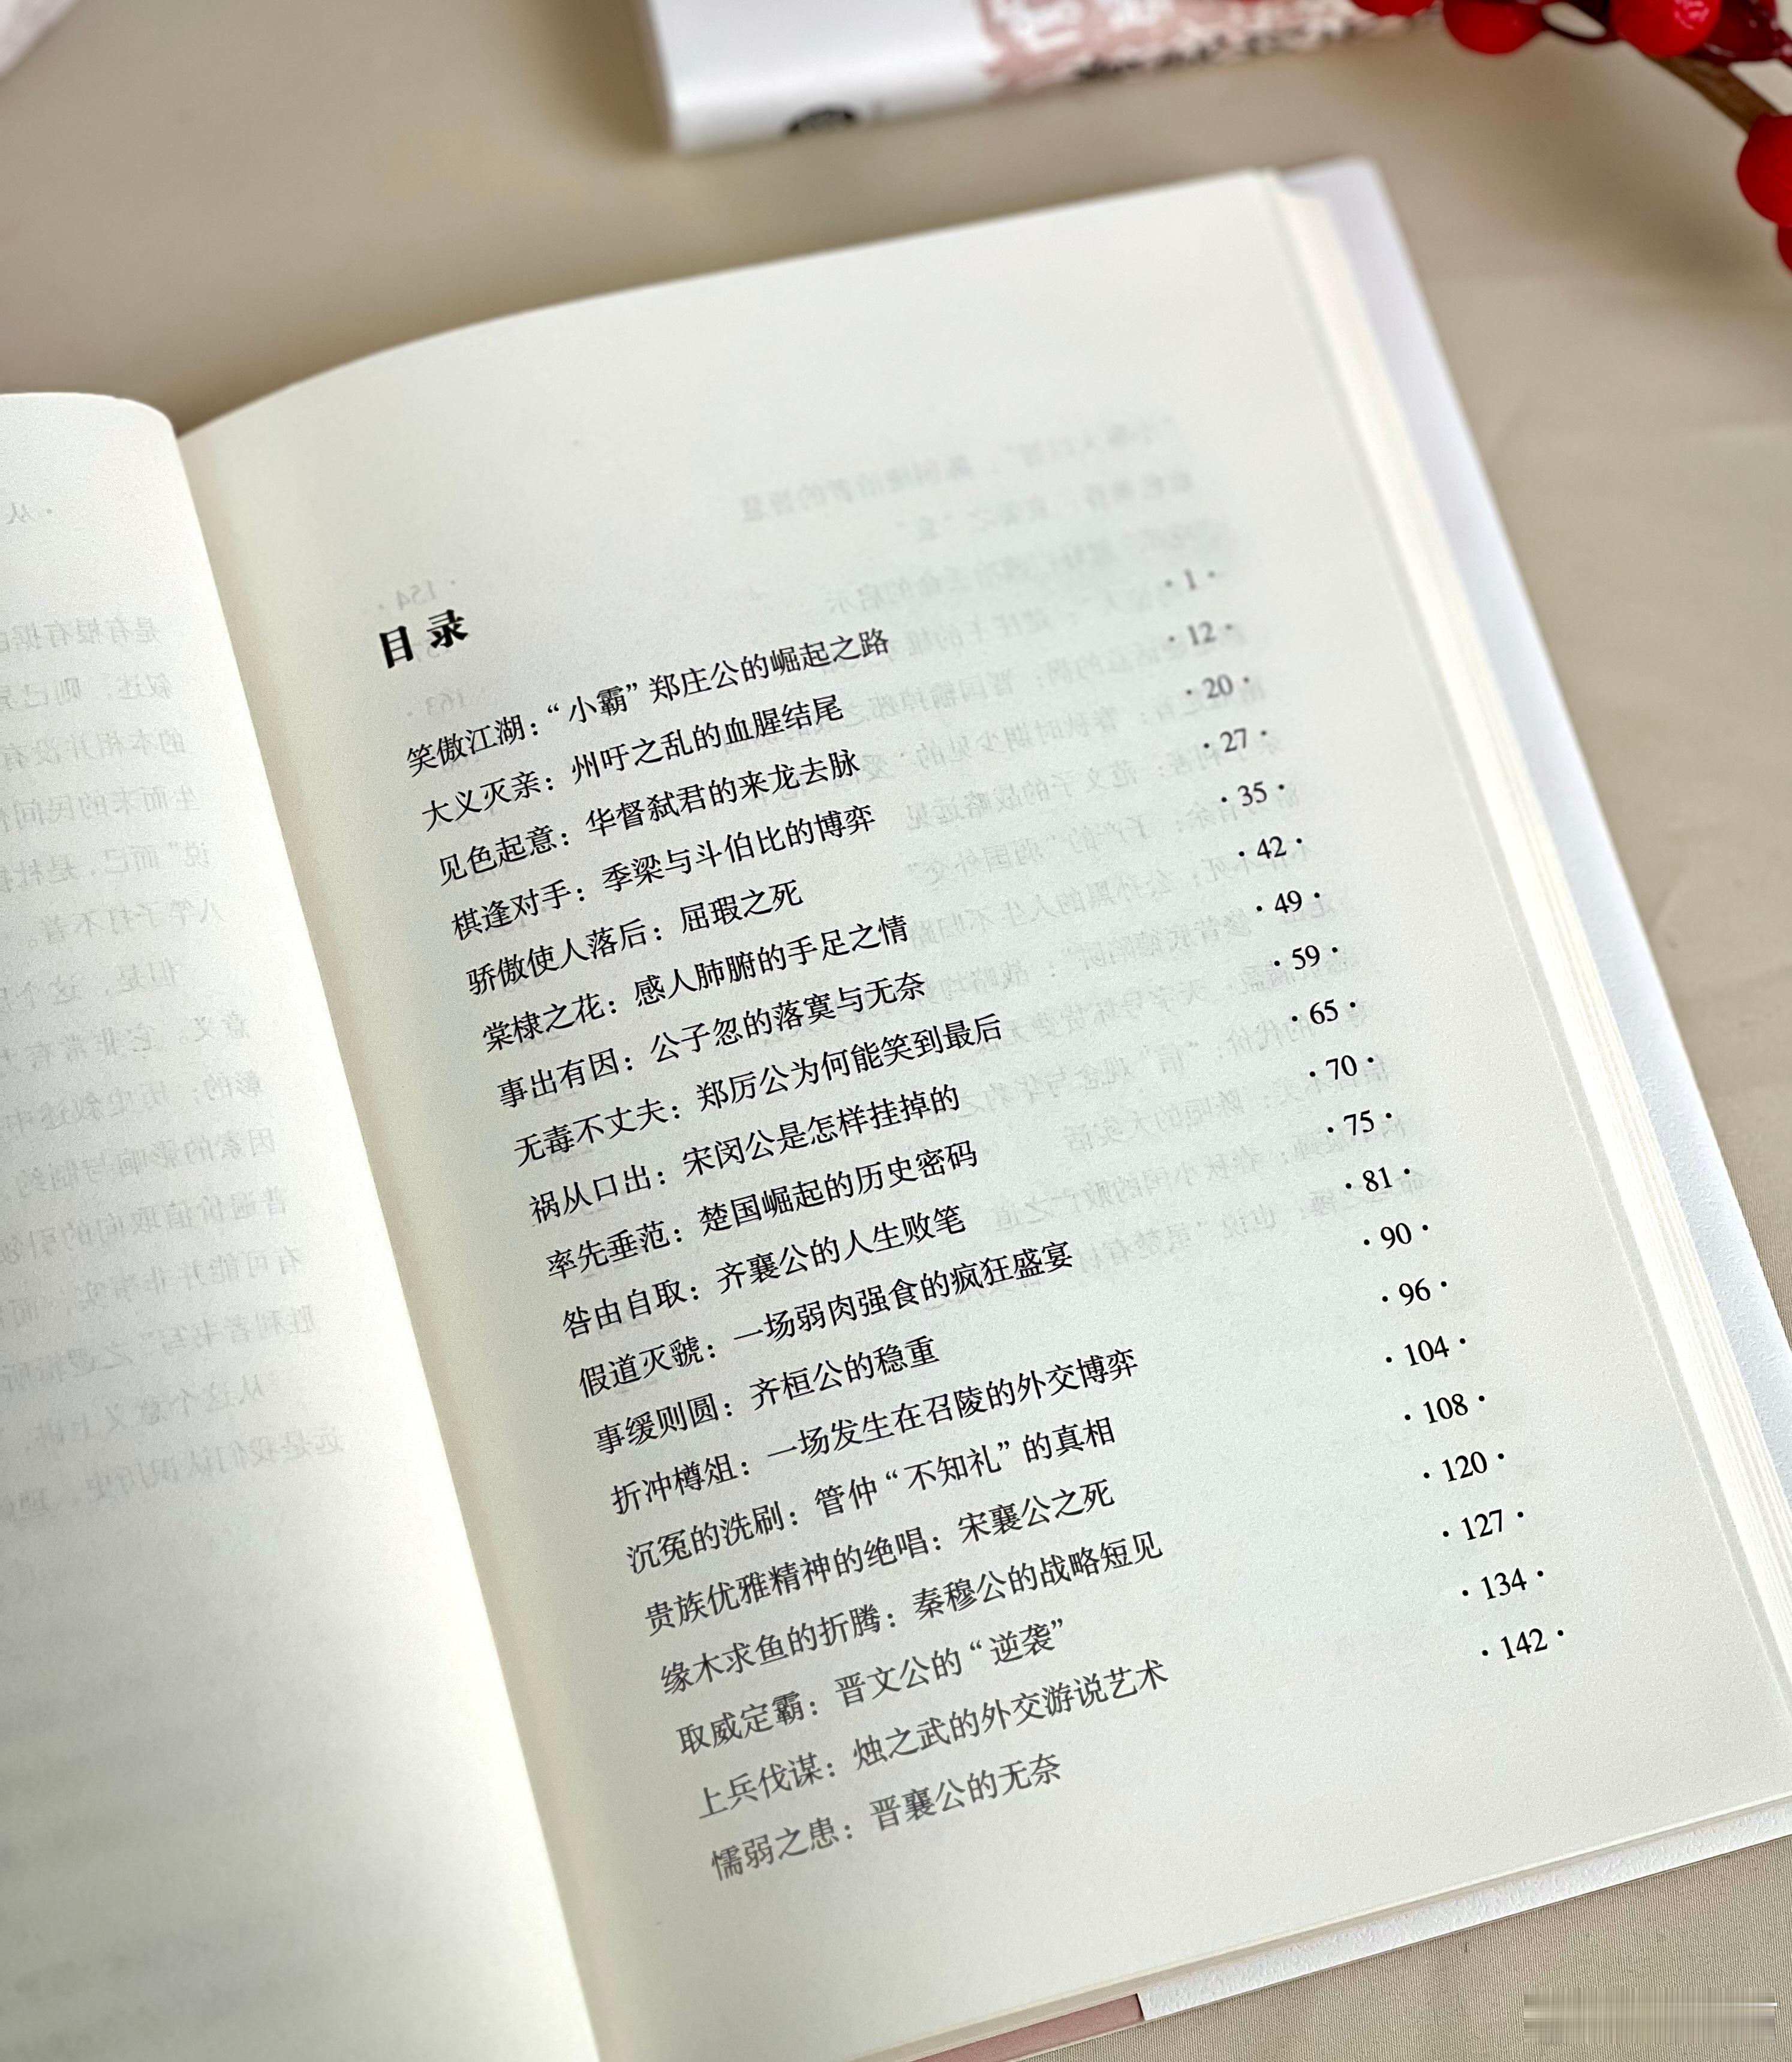 目录
笑傲江湖：“小霸”郑庄公的崛起之路 ·1·
大义灭亲：州吁之乱的血腥结尾 ·12·
见色起意：华督弑君的来龙去脉 ·20·
棋逢对手：季梁与斗伯比的博弈 ·27·
骄傲使人落后：屈瑕之死 ·35·
棠棣之花：感人肺腑的手足之情 ·42·
事出有因：公子忽的落寞与无奈 ·49·
无毒不丈夫：郑厉公为何能笑到最后 ·59·
祸从口出：宋闵公是怎样挂掉的 ·65·
率先垂范：楚国崛起的历史密码 ·70·
咎由自取：齐襄公的人生败笔 ·75·
假道灭虢：一场弱肉强食的疯狂盛宴 ·81·
事缓则圆：齐桓公的稳重 ·90·
折冲樽俎：一场发生在召陵的外交博弈 ·96·
沉冤的洗刷：管仲“不知礼”的真相 ·104·
贵族优雅精神的绝唱：宋襄公之死 ·108·
缘木求鱼的折腾：秦穆公的战略短见 ·120·
取威定霸：晋文公的“逆袭” ·127·
上兵伐谋：烛之武的外交游说艺术 ·134·
懦弱之患：晋襄公的无奈 ·142·